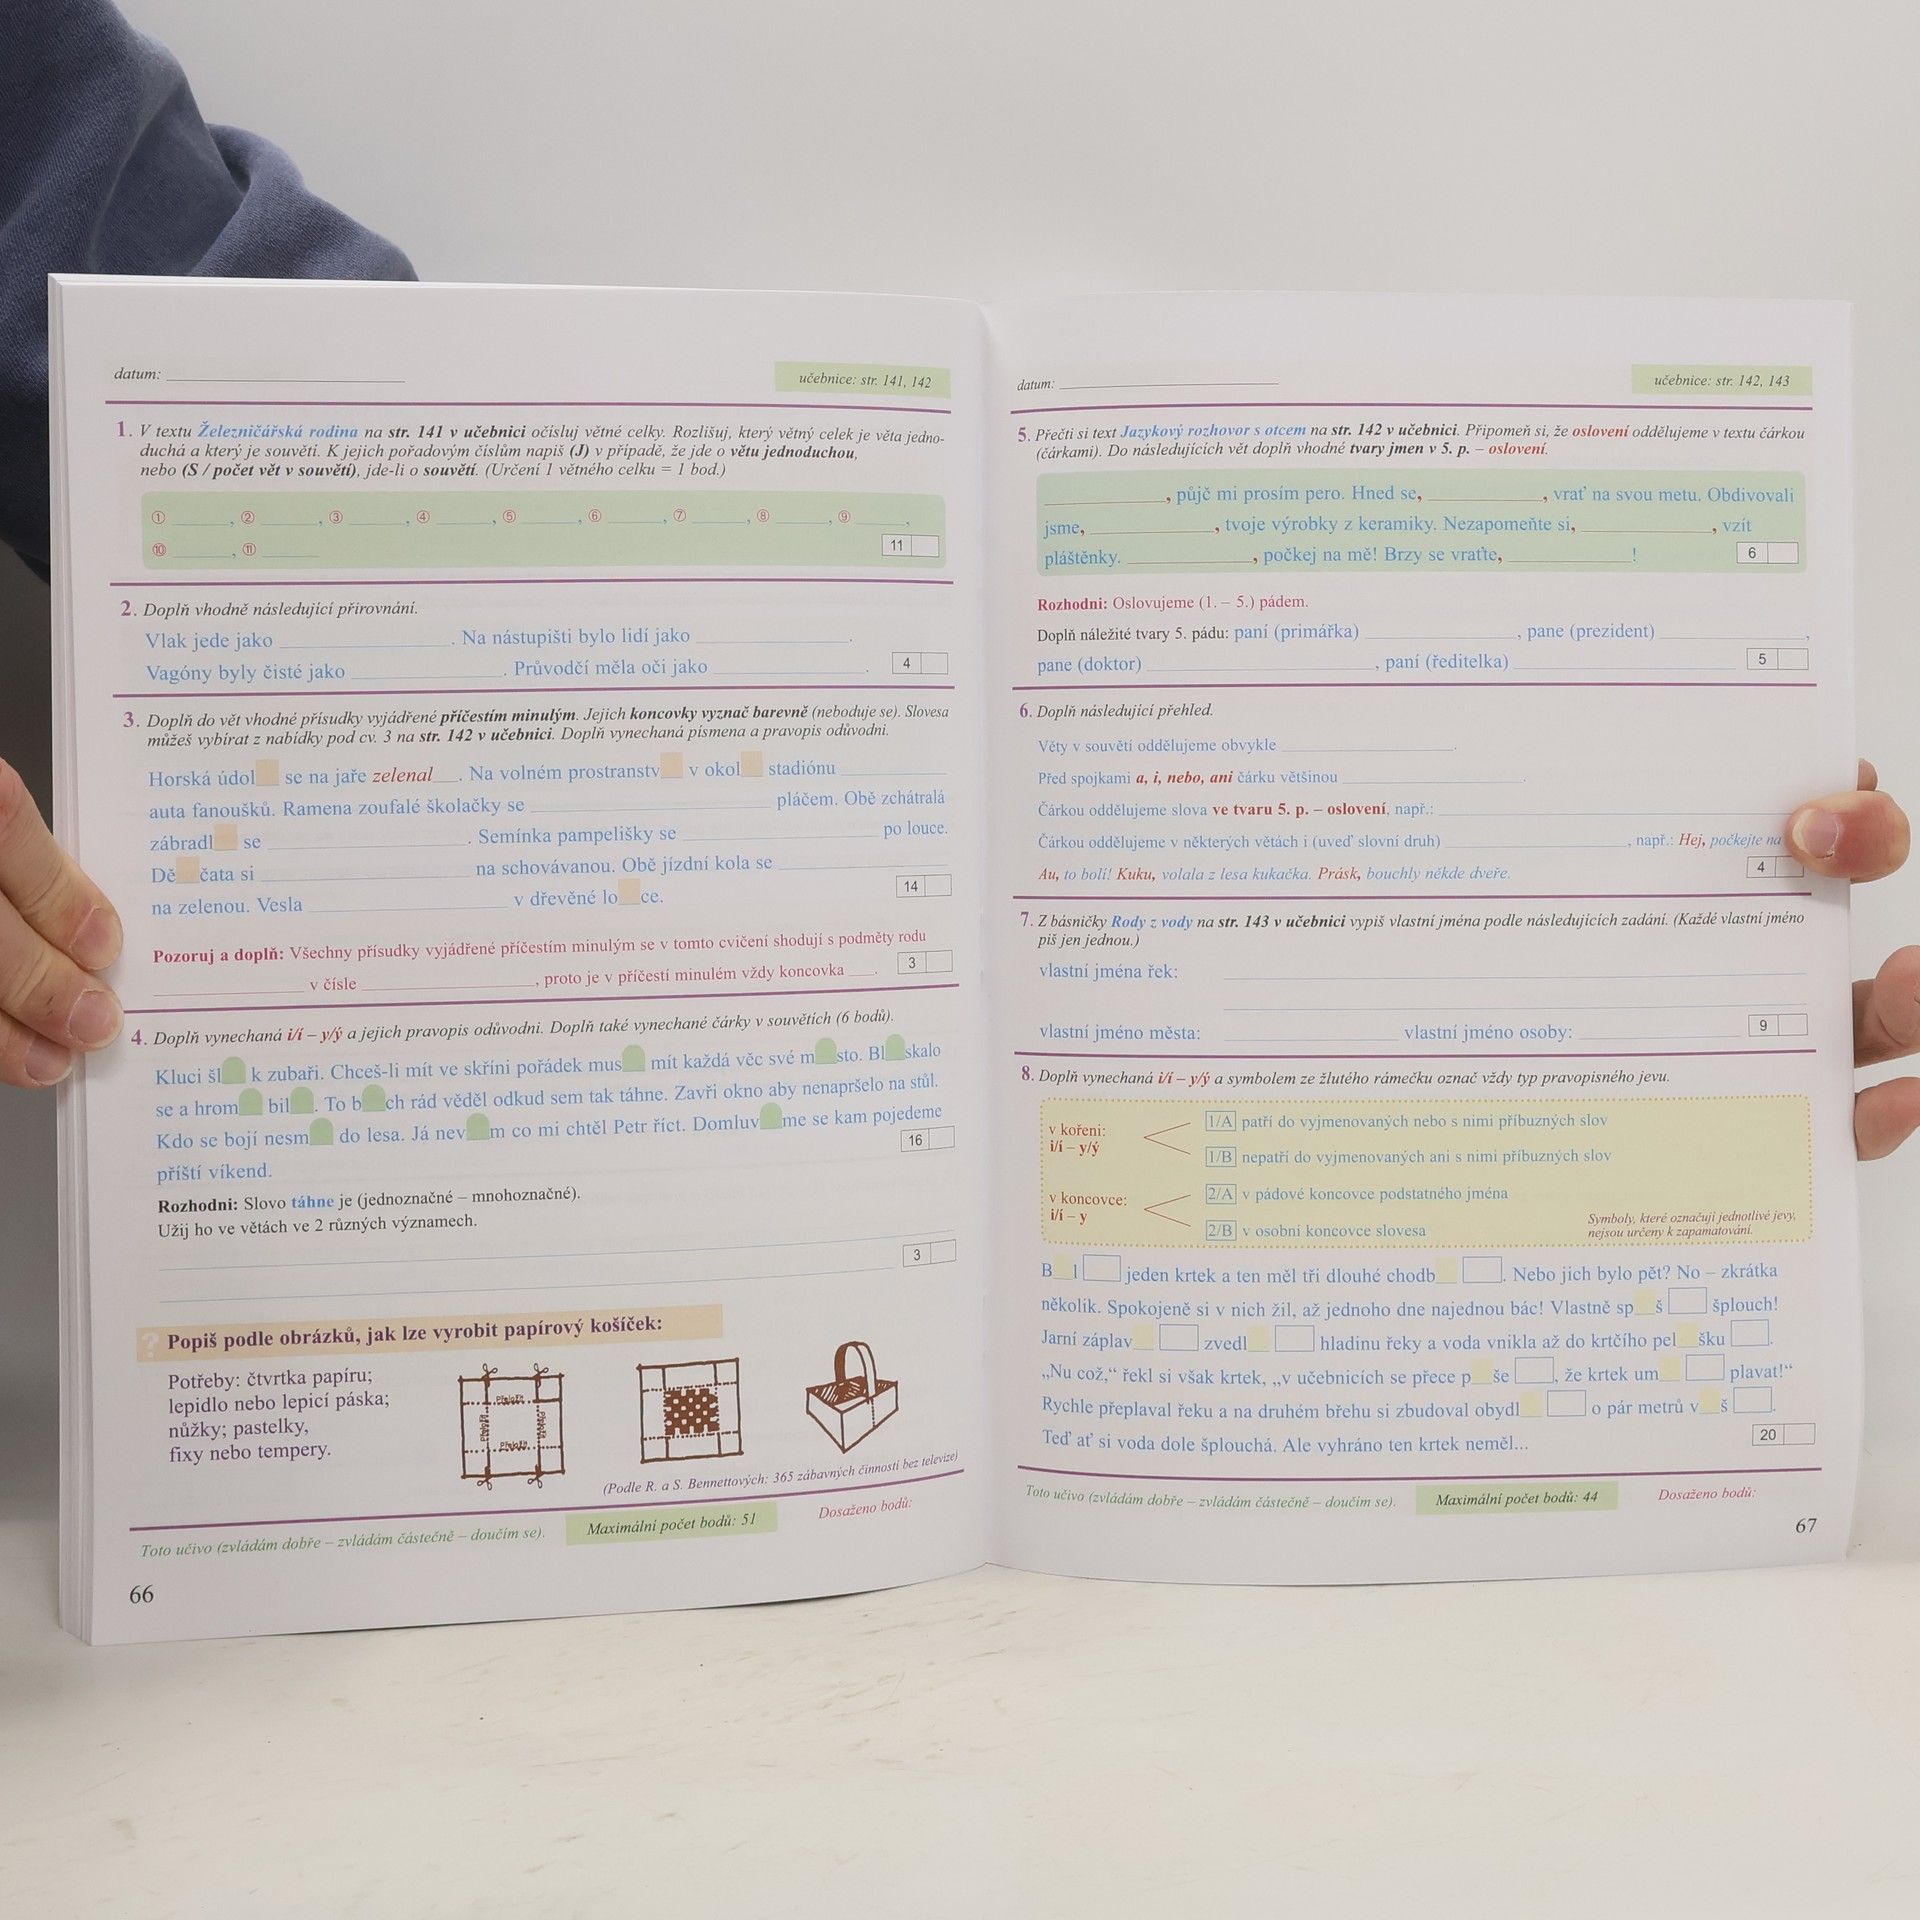 datum:
učebnice: str. 141, 142
1. V textu Železničářská rodina na str. 141 v učebnici očísluj větné celky. Rozlišuj, který větný celek je věta jedno-
duchá a který je souvětí. K jejich pořadovým číslům napiš (J) v případě, že jde o větu jednoduchou,
nebo (S / počet vět v souvětí), jde-li o souvětí. (Určení 1 větného celku = 1 bod.)
① ______, ② ______, ③ ______, ④ ______, ⑤ ______, ⑥ ______, ⑦ ______, ⑧ ______, ⑨ ______,
⑩ ______, ⑪ ______
11
2. Doplň vhodně následující přirovnání.
Vlak jede jako ______. Na nástupišti bylo lidí jako ______.
Vagóny byly čisté jako ______. Průvodčí měla oči jako ______.
4
3. Doplň do vět vhodné přísudky vyjádřené příčestím minulým. Jejich koncovky vyznač barevně (neboduje se). Slovesa
můžeš vybírat z nabídky pod cv. 3 na str. 142 v učebnici. Doplň vynechaná písmena a pravopis odůvodni.
Horská údol__ se na jaře zelenal__. Na volném prostranstv__ v okol__ stadiónu ______
auta fanoušků. Ramena zoufalé školačky se ______ pláčem. Obě zchátralá
zábradl__ se ______. Semínka pampelišky se ______ po louce.
Dě__čata si ______ na schovávanou. Obě jízdní kola se ______
na zelenou. Vesla ______ v dřevěné lo__ce.
14
Pozoruj a doplň: Všechny přísudky vyjádřené příčestím minulým se v tomto cvičení shodují s podměty rodu
______ v čísle ______, proto je v příčestí minulém vždy koncovka ___.
3
4. Doplň vynechaná i/í – y/ý a jejich pravopis odůvodni. Doplň také vynechané čárky v souvětích (6 bodů).
Kluci šl__ k zubaři. Chceš-li mít ve skříni pořádek mus__ mít každá věc své m__sto. Bl__skalo
se a hrom__ bil__. To b__ch rád věděl odkud sem tak táhne. Zavři okno aby nenapršelo na stůl.
Kdo se bojí nesm__ do lesa. Já nev__m co mi chtěl Petr říct. Domluv__me se kam pojedeme
příští víkend.
16
Rozhodni: Slovo táhne je (jednoznačné – mnohoznačné).
Užij ho ve větách ve 2 různých významech.
3
? Popiš podle obrázků, jak lze vyrobit papírový košíček:
Potřeby: čtvrtka papíru;
lepidlo nebo lepicí páska;
nůžky; pastelky,
fixy nebo tempery.
Přeložit
Přeložit
Přeložit
Přeložit
(Podle R. a S. Bennettových: 365 zábavných činností bez televize)
Toto učivo (zvládám dobře – zvládám částečně – doučím se).
Maximální počet bodů: 51
Dosaženo bodů:
66
datum:
učebnice: str. 142, 143
5. Přečti si text Jazykový rozhovor s otcem na str. 142 v učebnici. Připomeň si, že oslovení oddělujeme v textu čárkou
(čárkami). Do následujících vět doplň vhodné tvary jmen v 5. p. – oslovení.
______, půjč mi prosím pero. Hned se, ______, vrať na svou metu. Obdivovali
jsme, ______, tvoje výrobky z keramiky. Nezapomeňte si, ______, vzít
pláštěnky. ______, počkej na mě! Brzy se vraťte, ______!
6
Rozhodni: Oslovujeme (1. – 5.) pádem.
Doplň náležité tvary 5. pádu: paní (primářka) ______, pane (prezident) ______,
pane (doktor) ______, paní (ředitelka) ______
5
6. Doplň následující přehled.
Věty v souvětí oddělujeme obvykle ______.
Před spojkami a, i, nebo, ani čárku většinou ______.
Čárkou oddělujeme slova ve tvaru 5. p. – oslovení, např.: ______
Čárkou oddělujeme v některých větách i (uveď slovní druh) ______, např.: Hej, počkejte na
Au, to bolí! Kuku, volala z lesa kukačka. Prásk, bouchly někde dveře.
4
7. Z básničky Rody z vody na str. 143 v učebnici vypiš vlastní jména podle následujících zadání. (Každé vlastní jméno
piš jen jednou.)
vlastní jména řek:
vlastní jméno města: ______ vlastní jméno osoby: ______
9
8. Doplň vynechaná i/í – y/ý a symbolem ze žlutého rámečku označ vždy typ pravopisného jevu.
v kořeni:
i/í – y/ý
1/A patří do vyjmenovaných nebo s nimi příbuzných slov
1/B nepatří do vyjmenovaných ani s nimi příbuzných slov
v koncovce:
i/í – y
2/A v pádové koncovce podstatného jména
2/B v osobní koncovce slovesa
Symboly, které označují jednotlivé jevy,
nejsou určeny k zapamatování.
B__l jeden krtek a ten měl tři dlouhé chodb__. Nebo jich bylo pět? No – zkrátka
několik. Spokojeně si v nich žil, až jednoho dne najednou bác! Vlastně sp__š šplouch!
Jarní záplav__ zvedl__ hladinu řeky a voda vnikla až do krtčího pel__šku.
„Nu což,“ řekl si však krtek, „v učebnicích se přece p__še, že krtek um__ plavat!“
Rychle přeplaval řeku a na druhém břehu si zbudoval obydl__ o pár metrů v__š.
Teď ať si voda dole šplouchá. Ale vyhráno ten krtek neměl...
20
Toto učivo (zvládám dobře – zvládám částečně – doučím se).
Maximální počet bodů: 44
Dosaženo bodů:
67